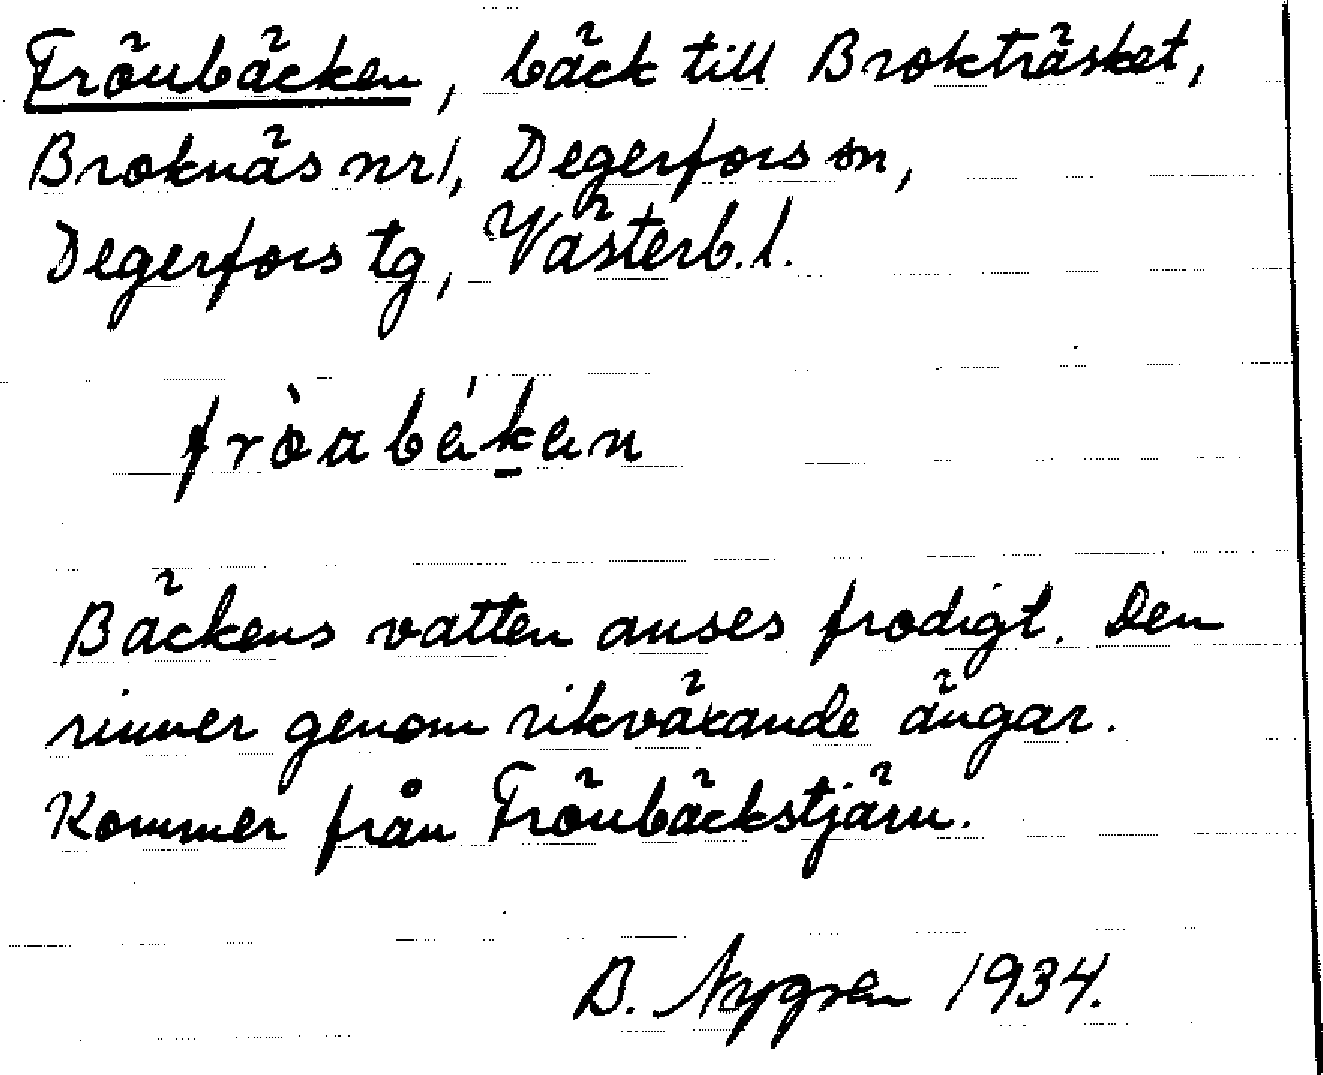 Fröubäcken, bäck till Brokträsket,
Broknäs nr 1, Degerfors sn,
Degerfors tg, Västerb. l.
Bäckens vatten anses frodigt. Den
rinner genom rikväxande ängar.
Kommer från Fröubäckstjärn.
B. Nygren 1934.